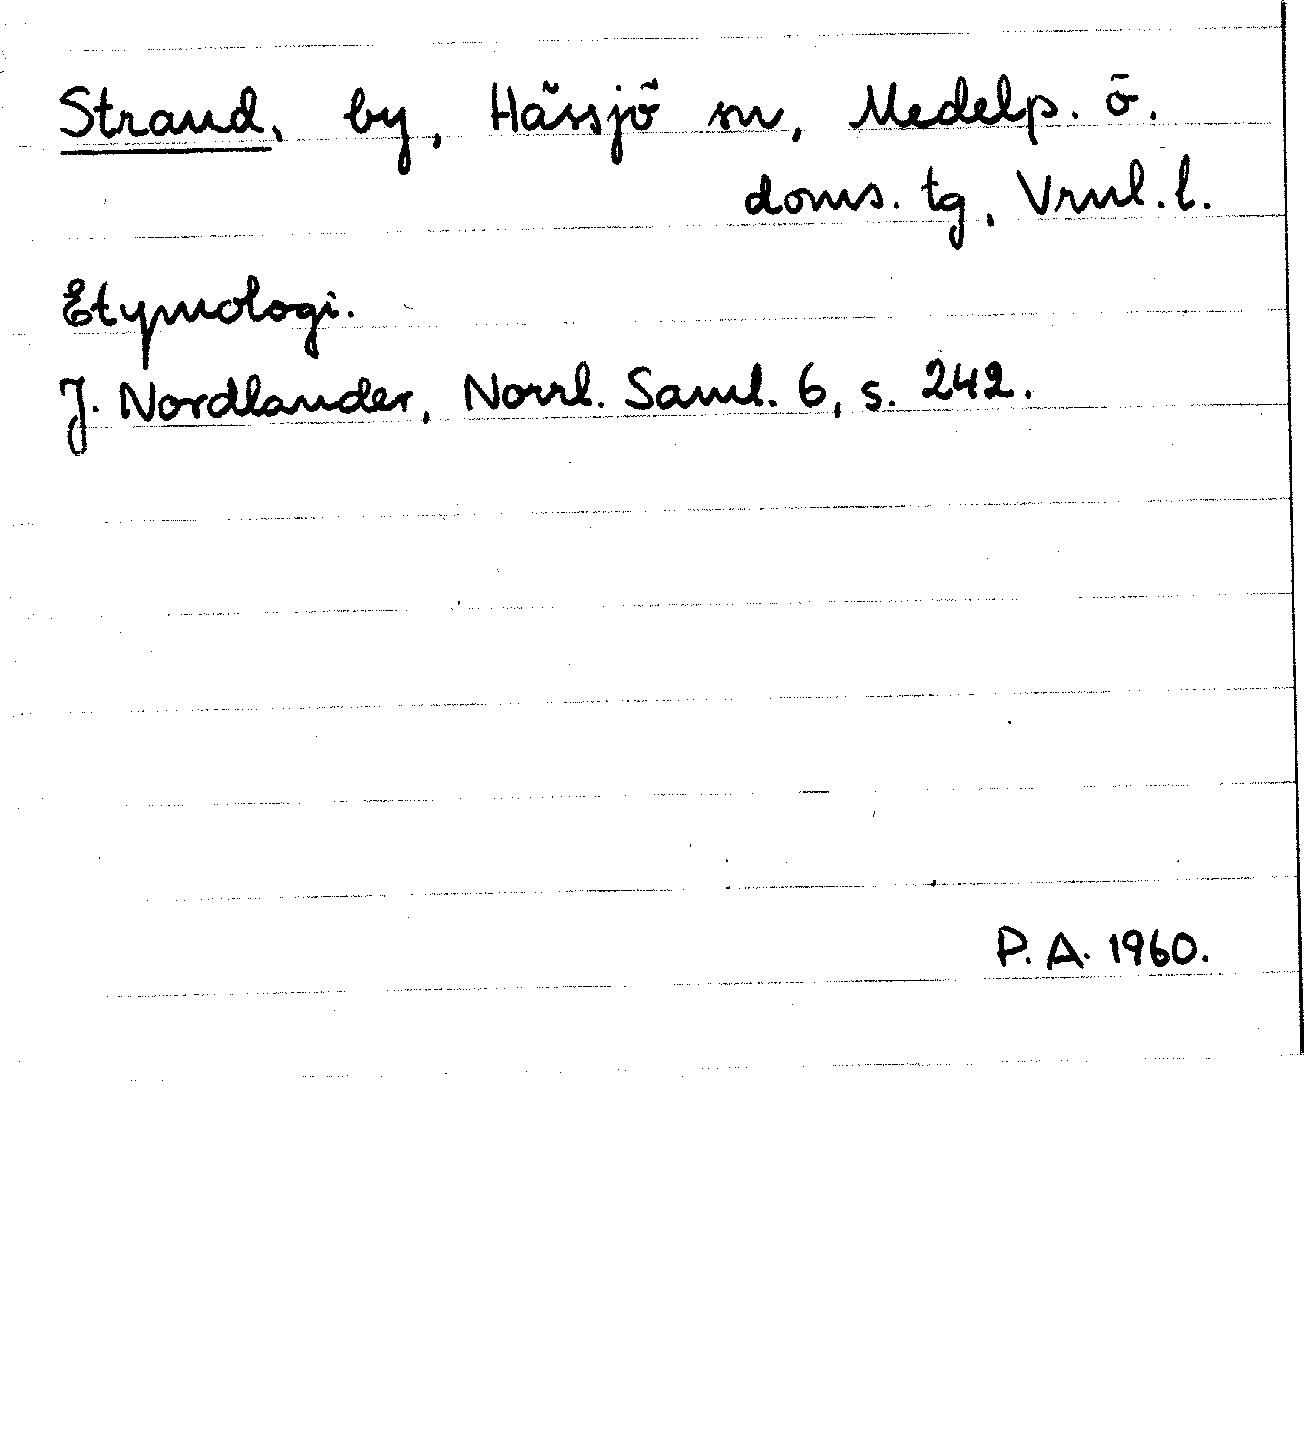 Strand, by, Hässjö sn, Medelp. ö.
doms. tg, Vrnl. l.
Etymologi.
J. Nordlander, Norrl. Saml. 6, s. 242.
P. A. 1960.